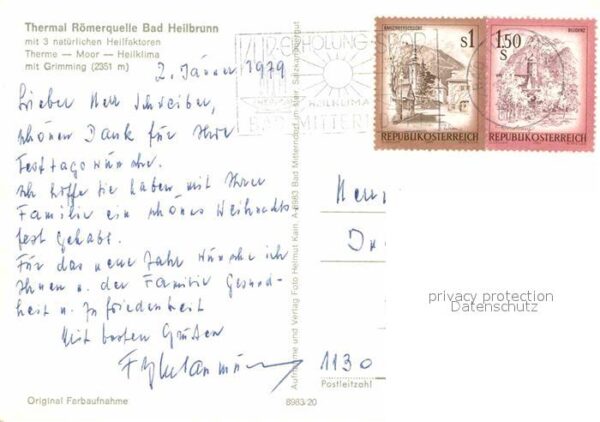 Thermal Römerquelle Bad Heilbrunn
mit 3 natürlichen Heilfaktoren
Therme — Moor — Heilklima
mit Grimming (2351 m)
2. Jänner 1979
Lieber Herr Schreiber,
schönen Dank für Ihre
Festtagswünsche.
Ich hoffe sie haben mit Ihrer
Familie ein schönes Weihnachts
fest gehabt.
Für das neue Jahr wünsche ich
Ihnen u. der Familie Gesund-
heit u. Zufriedenheit
Mit besten Grüßen
Original Farbaufnahme
8983/20
Aufnahme und Verlag Foto Helmut Kain A-8983 Bad Mitterndorf im steir. Salzkammergut
KUR ERHOLUNG
HEILKLIMA
BAD MITTERN
S1
REPUBLIK ÖSTERREICH
1.50
S
BLUDENZ
REPUBLIK ÖSTERREICH
Herrn
1130
Postleitzahl
privacy protection
Datenschutz